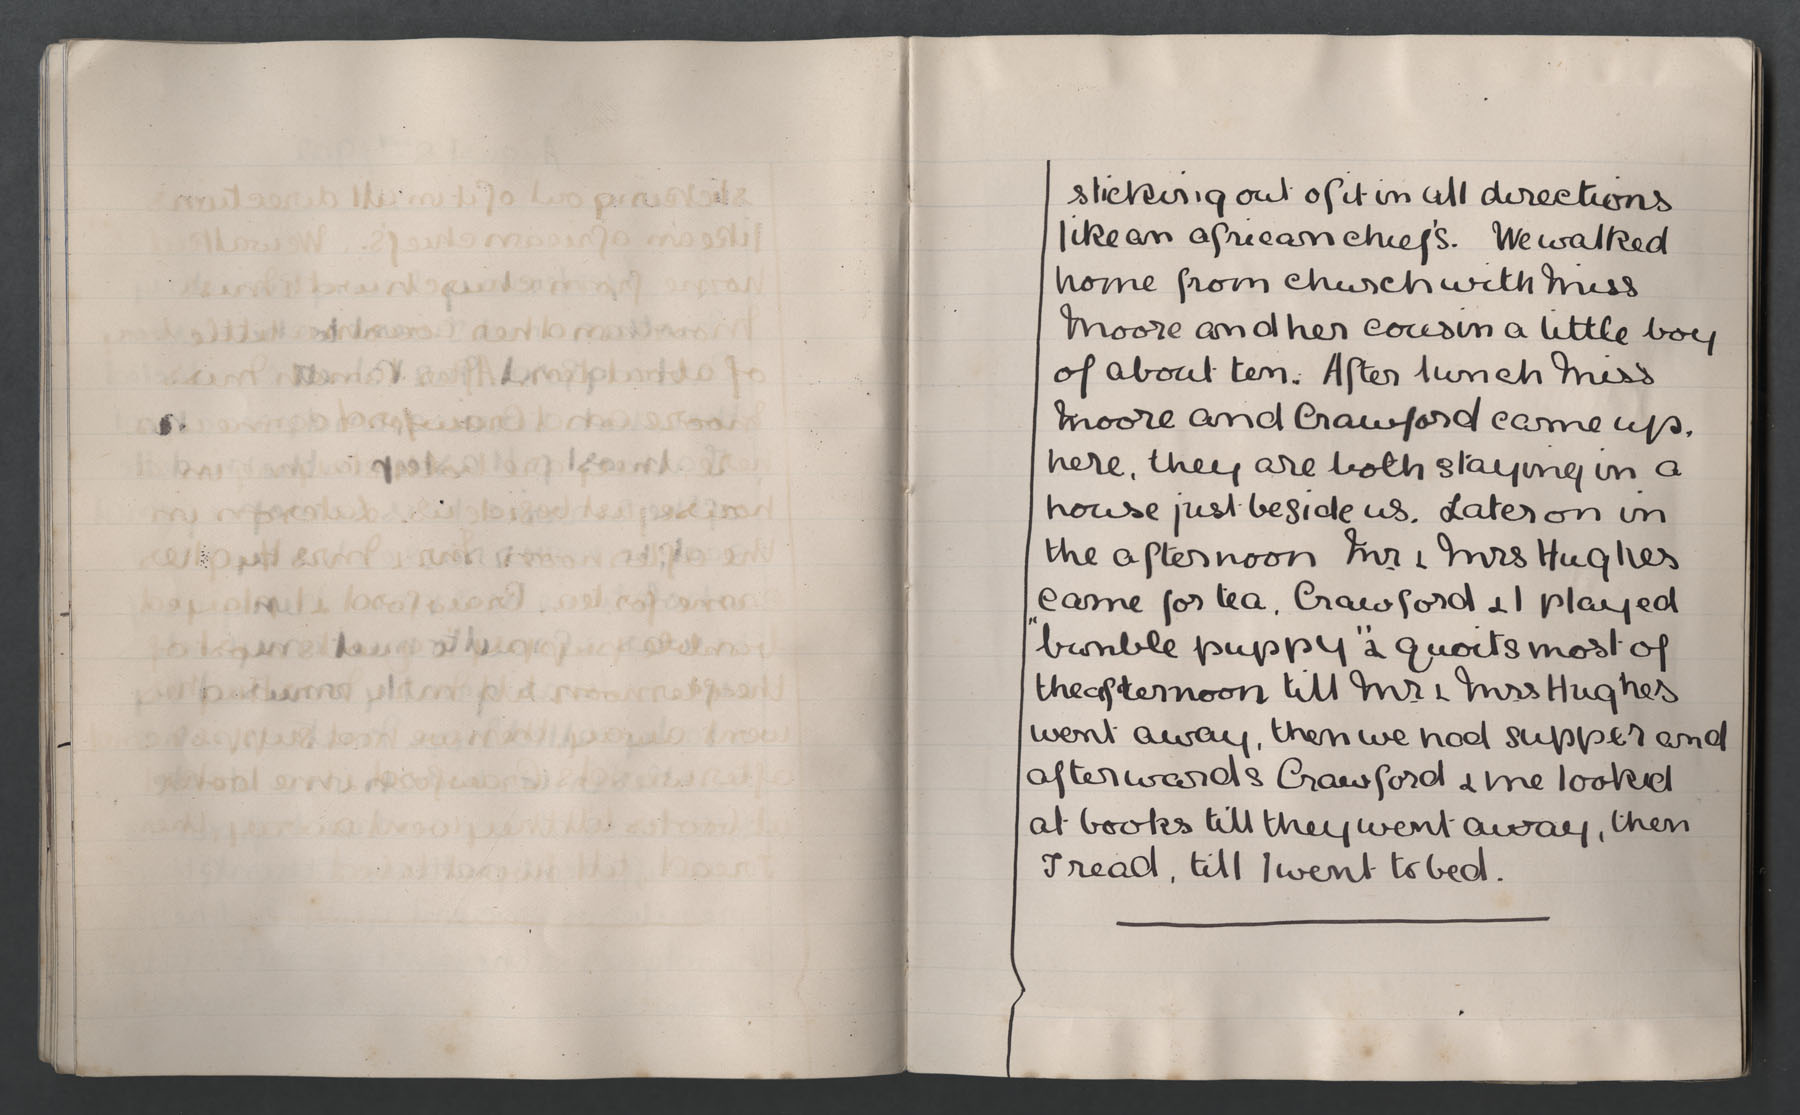 sticking out of it in all directions
like an african chief's. We walked
home from church with Miss
Moore and her cousin a little boy
of about ten. After lunch Miss
Moore and Crawford came up.
here, they are both staying in a
house just beside us. Later on in
the afternoon Mr & Mrs Hughes
came for tea. Crawford & I played
"bumble puppy" & quoits most of
the afternoon till Mr & Mrs Hughes
went away, then we had supper and
afterwards Crawford & me looked
at books till they went away, then
I read, till I went to bed.